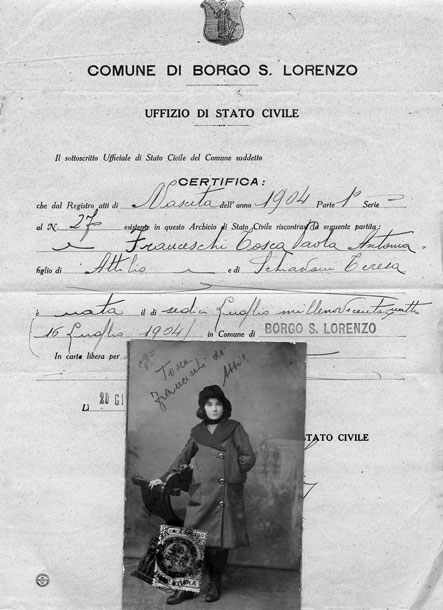 COMUNE DI BORGO S. LORENZO
UFFIZIO DI STATO CIVILE
Il sottoscritto Ufficiale di Stato Civile del Comune suddetto
CERTIFICA:
che dal Registro atti di Nascita dell'anno 1904 Parte 1ª Serie =
al N. 270 esistente in questo Archivio di Stato Civile riscontrasi la seguente partita:
Franceschi Tosca Paola Antonia
figlio di Attilio e di Teresa
è nata il dì sedici Luglio millenovecentoquattro
(16 Luglio 1904) in Comune di BORGO S. LORENZO
In carta libera per
Tosca
Franceschi di
Attilio
Lì 20 GI
STATO CIVILE